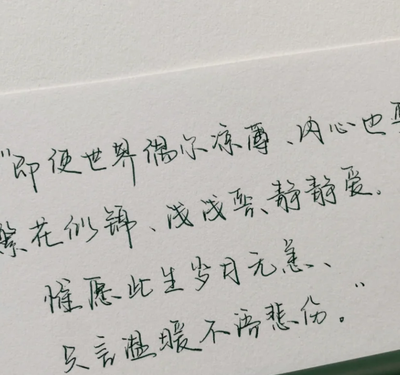 "即便世界偶尔凉薄、内心也要
繁花似锦、浅浅笑、静静爱。
惟愿此生岁月无恙、
只言温暖不语悲伤。"